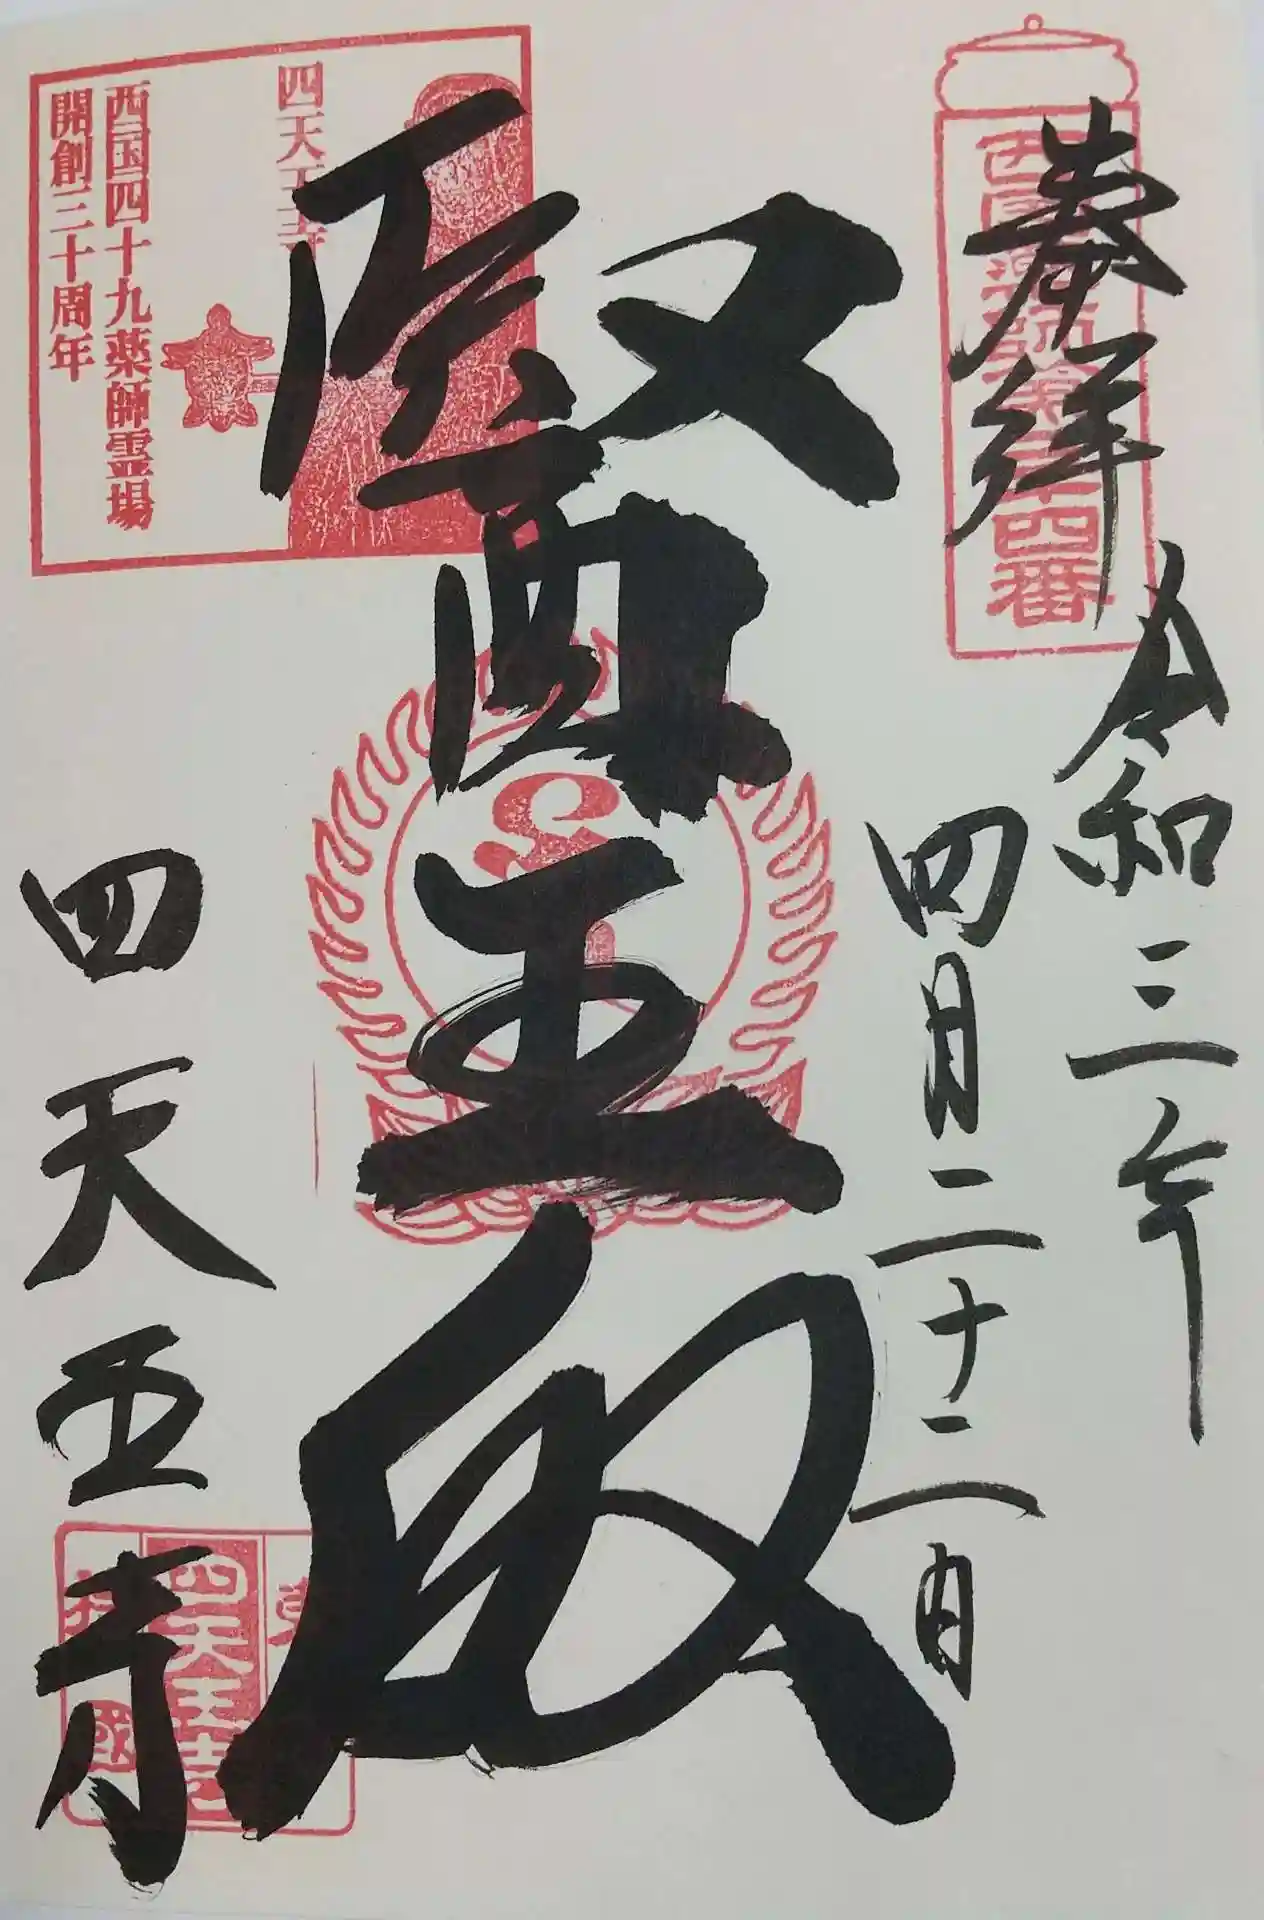 奉拝
西国薬師第十四番
令和三年
四月二十二日
醫王殿
四天王寺
西国四十九薬師霊場
開創三十周年
四天王寺
四天王寺